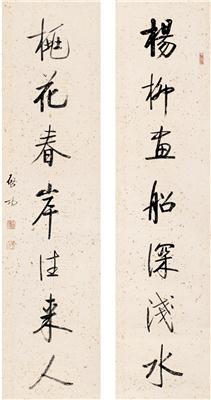 楊柳畫船深淺水
桃花春岸往來人
啓功